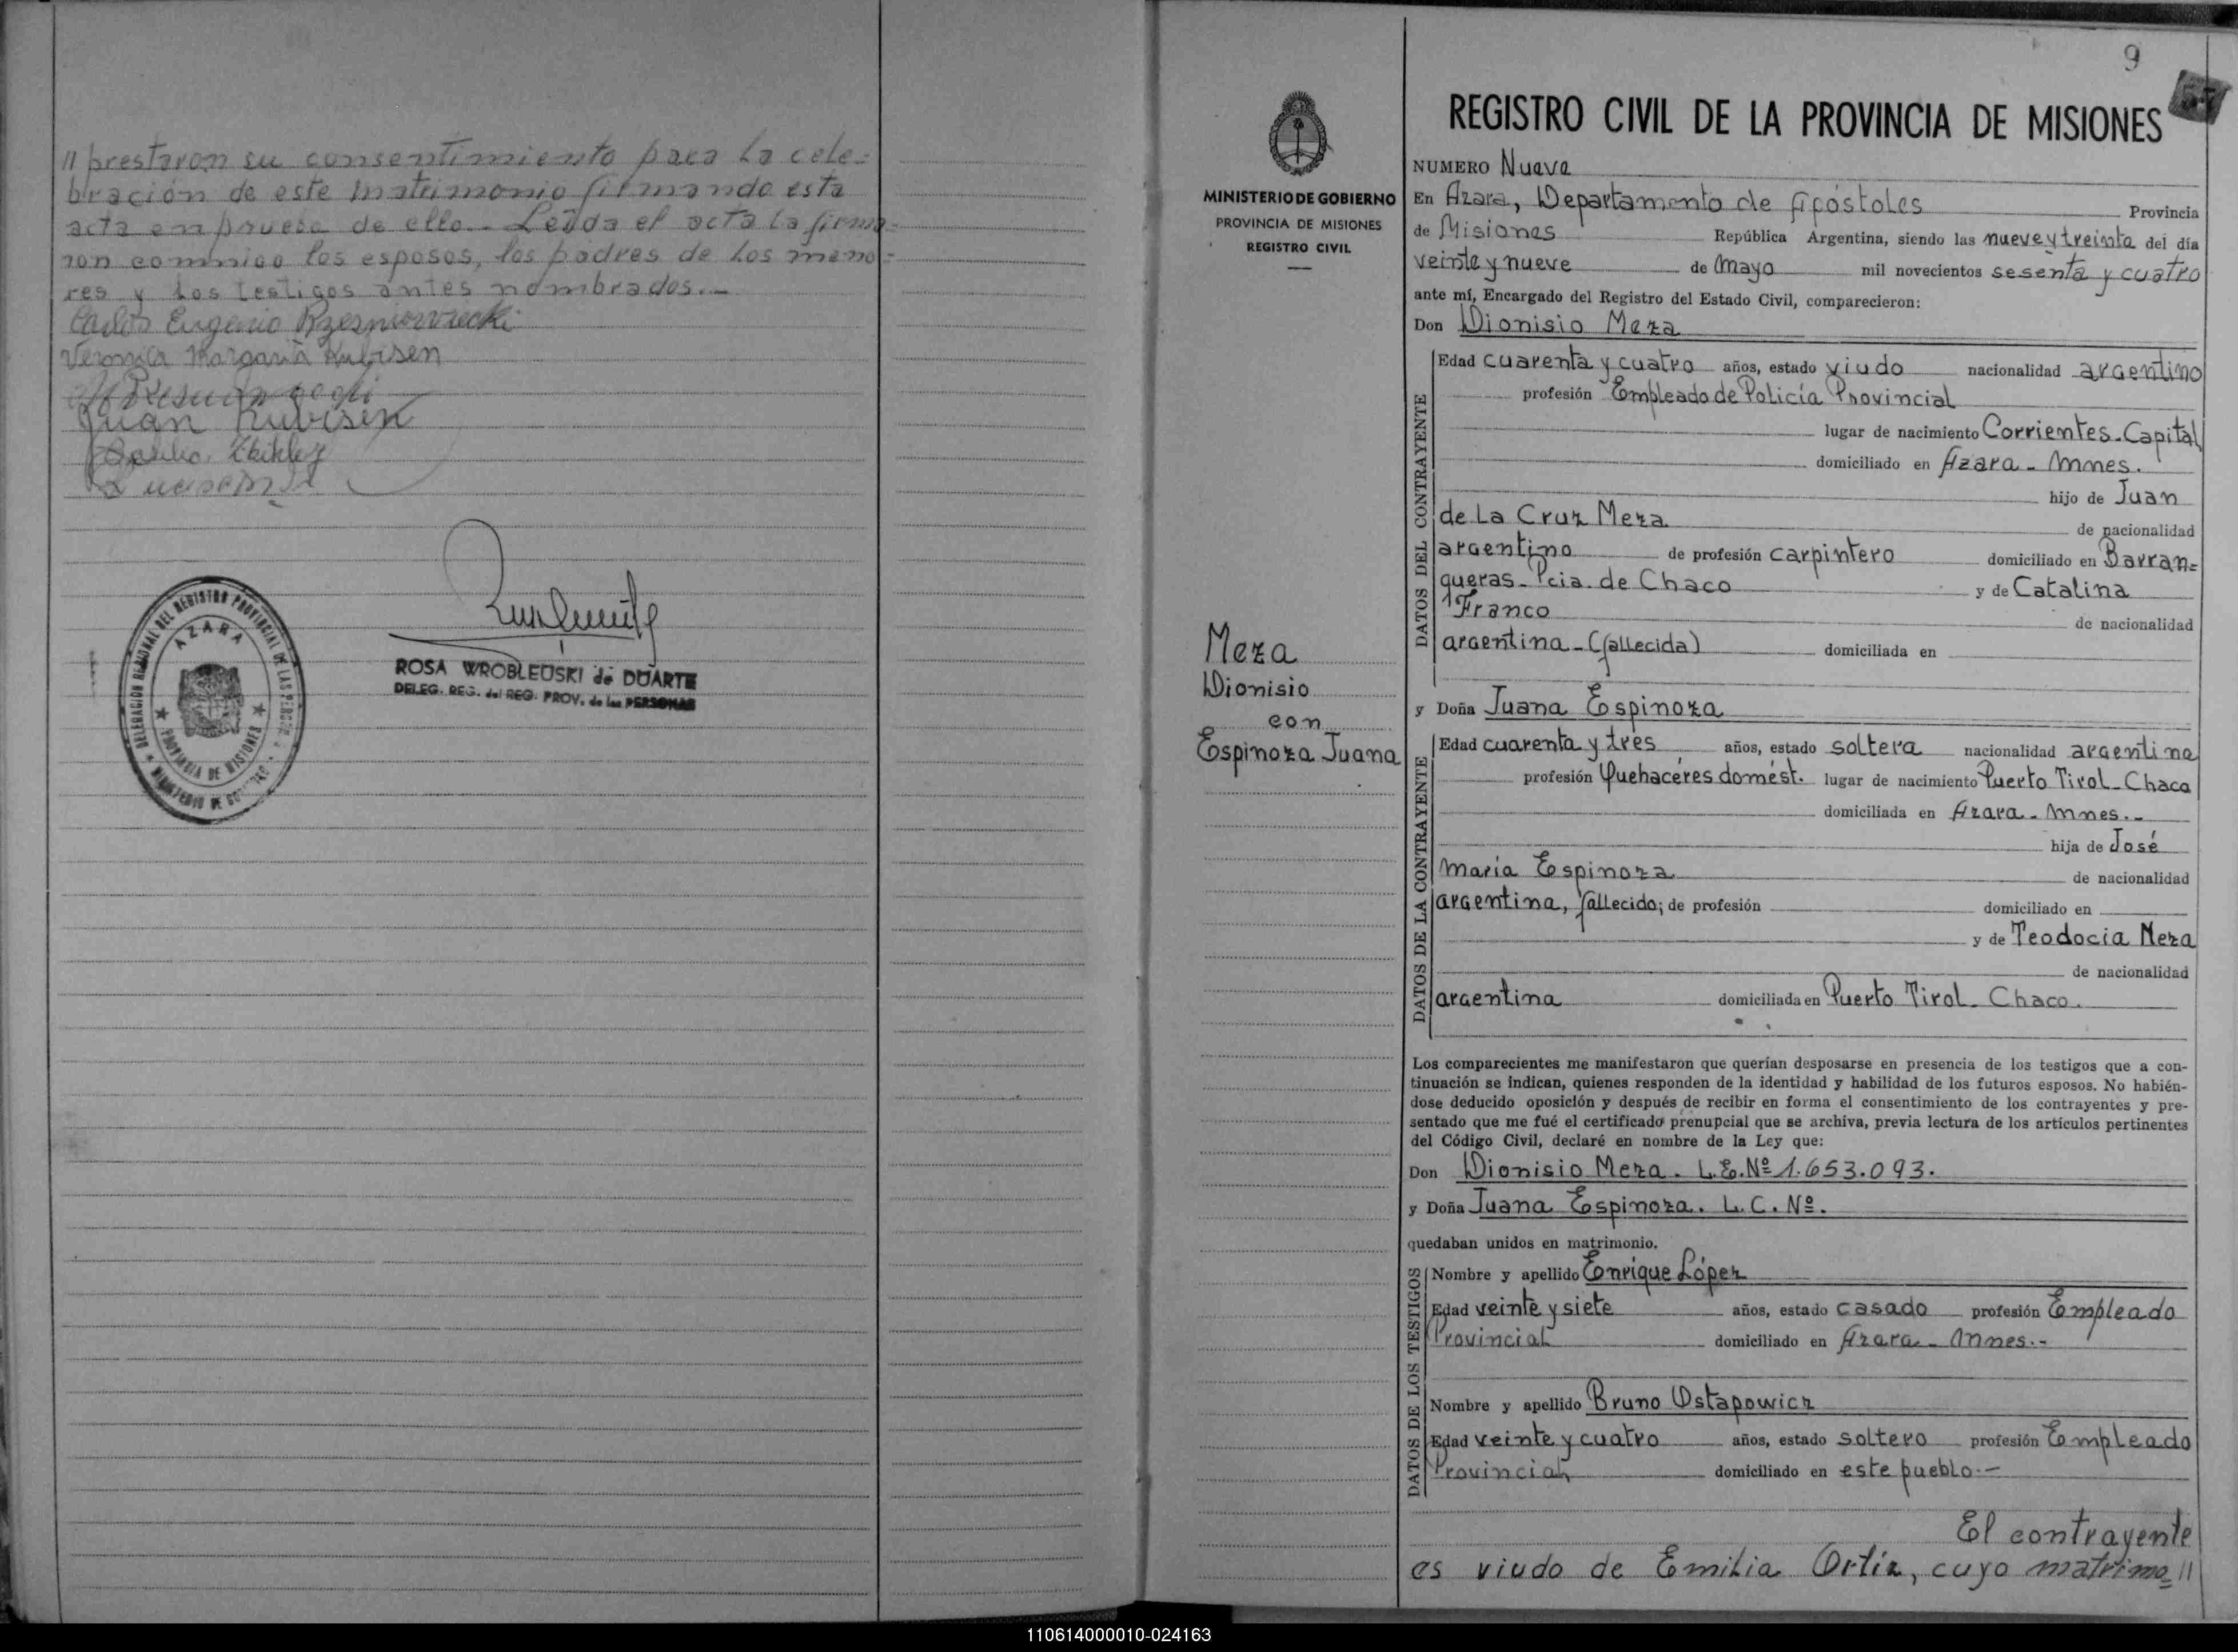 // prestaron su consentimiento para la cele-
bración de este matrimonio firmando esta
acta en prueba de ello.- Leída el acta la firma-
ron conmigo los esposos, los padres de los meno-
res y los testigos antes nombrados.-
Carlos Eugenio Rzesniowiecki
Veronica Margarita Kubisen
Juan Kubisen
DELEGACION REGIONAL DEL REGISTRO PROVINCIAL DE LAS PERSONAS
AZARA
PROVINCIA DE MISIONES
MINISTERIO DE GOBIERNO
ROSA WROBLEUSKI de DUARTE
DELEG. REG. del REG. PROV. de las PERSONAS
9
MINISTERIO DE GOBIERNO
PROVINCIA DE MISIONES
REGISTRO CIVIL
Meza
Dionisio
con
Espinoza Juana
REGISTRO CIVIL DE LA PROVINCIA DE MISIONES
NUMERO Nueve
En Azara, Departamento de Apóstoles Provincia
de Misiones República Argentina, siendo las nueve y treinta del día
veinte y nueve de Mayo mil novecientos sesenta y cuatro
ante mí, Encargado del Registro del Estado Civil, comparecieron:
Don Dionisio Meza
DATOS DEL CONTRAYENTE
Edad cuarenta y cuatro años, estado viudo nacionalidad argentino
profesión Empleado de Policía Provincial
lugar de nacimiento Corrientes-Capital
domiciliado en Azara - Mnes.
hijo de Juan
de La Cruz Meza de nacionalidad
argentino de profesión carpintero domiciliado en Barran=
queras - Pcia. de Chaco y de Catalina
Franco de nacionalidad
argentina - (fallecida) domiciliada en
y Doña Juana Espinoza
DATOS DE LA CONTRAYENTE
Edad cuarenta y tres años, estado soltera nacionalidad argentina
profesión Quehaceres domést. lugar de nacimiento Puerto Tirol - Chaco
domiciliada en Azara - Mnes.-
hija de José
María Espinoza de nacionalidad
argentina, fallecido; de profesión domiciliado en
y de Teodocia Meza
de nacionalidad
argentina domiciliada en Puerto Tirol - Chaco.
Los comparecientes me manifestaron que querían desposarse en presencia de los testigos que a con-
tinuación se indican, quienes responden de la identidad y habilidad de los futuros esposos. No habién-
dose deducido oposición y después de recibir en forma el consentimiento de los contrayentes y pre-
sentado que me fué el certificado prenupcial que se archiva, previa lectura de los artículos pertinentes
del Código Civil, declaré en nombre de la Ley que:
Don Dionisio Meza. L.E. Nº 1.653.093.
y Doña Juana Espinoza. L.C. Nº.
quedaban unidos en matrimonio.
DATOS DE LOS TESTIGOS
Nombre y apellido Enrique López
Edad veinte y siete años, estado casado profesión Empleado
Provincial domiciliado en Azara - Mnes.-
Nombre y apellido Bruno Ostapowicz
Edad veinte y cuatro años, estado soltero profesión Empleado
Provincial domiciliado en este pueblo.-
El contrayente
es viudo de Emilia Ortíz, cuyo matrimo= //
110614000010-024163